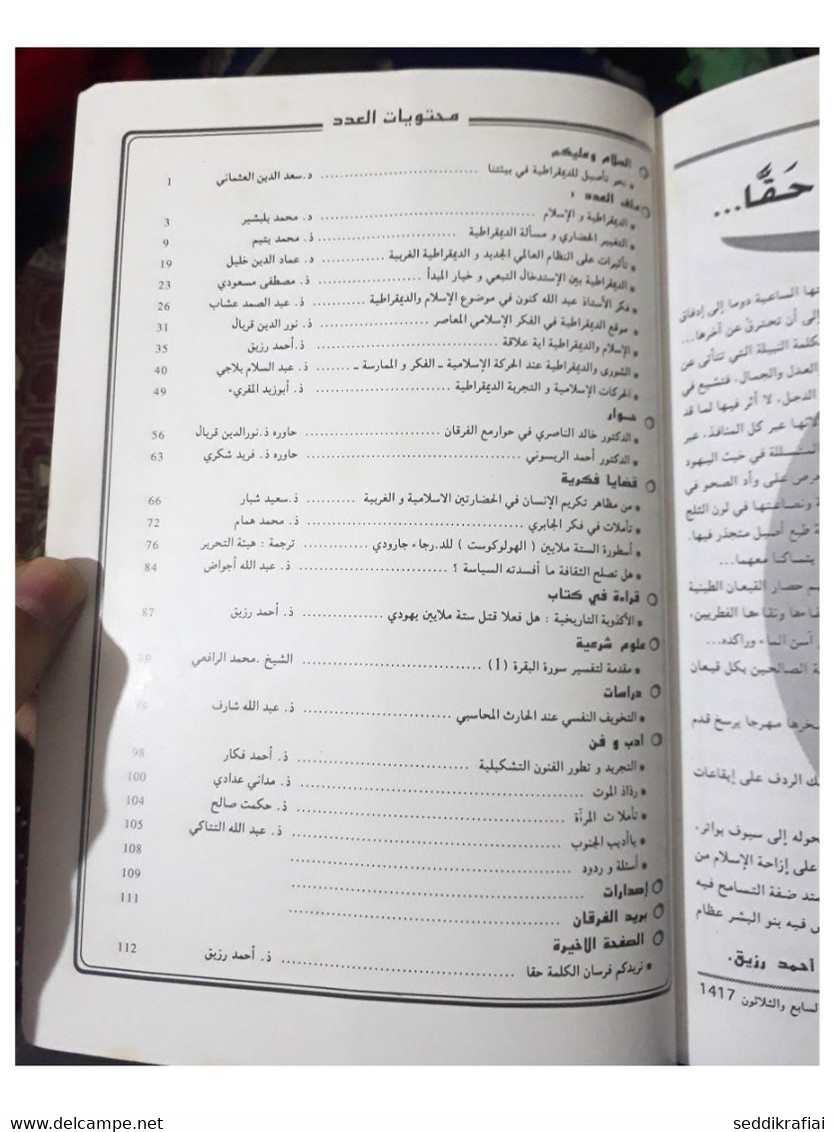 محتويات العدد
السلام وعليكم
• نحو تأصيل للديمقراطية في بيئتنا ........ د.سعد الدين العثماني 1
ملف العدد :
• الديمقراطية و الإسلام ........ د. محمد بلبشير 3
• التغيير الحضاري و مسألة الديمقراطية ........ ذ. محمد يتيم 9
• تأثيرات على النظام العالمي الجديد و الديمقراطية الغربية ........ د. عماد الدين خليل 19
• الديمقراطية بين الإستدخال التبعي و خيار المبدأ ........ ذ. مصطفى مسعودي 23
• فكر الأستاذ عبد الله كنون في موضوع الإسلام والديمقراطية ........ ذ. عبد الصمد عشاب 26
• موقع الديمقراطية في الفكر الإسلامي المعاصر ........ ذ. نور الدين قربال 31
• الإسلام والديمقراطية اية علاقة ........ ذ.أحمد رزيق 35
• الشورى والديمقراطية عند الحركة الإسلامية ـ الفكر و الممارسة ـ ........ ذ. عبد السلام بلاجي 40
• الحركات الإسلامية و التجربة الديمقراطية ........ ذ. أبوزيد المقرىء 49
حـوار
• الدكتور خالد الناصري في حوارمع الفرقان ........ حاوره ذ.نورالدين قربال 56
• الدكتور أحمد الريسوني ........ حاوره ذ. فريد شكري 63
قضايا فكرية
• من مظاهر تكريم الإنسان في الحضارتين الاسلامية و الغربية ........ ذ.سعيد شبار 66
• تأملات في فكر الجابري ........ ذ. محمد همام 72
• أسطورة الستة ملايين ( الهولوكوست ) للد.رجاء جارودي ........ ترجمة : هيئة التحرير 76
• هل تصلح الثقافة ما أفسدته السياسة ؟ ........ ذ. عبد الله أجواض 84
قراءة في كتاب
• الأكذوبة التاريخية : هل فعلا قتل ستة ملايين يهودي ........ ذ. أحمد رزيق 87
علوم شرعية
• مقدمة لتفسير سورة البقرة (1) ........ الشيخ .محمد الرافعي
دراسات
• التخويف النفسي عند الحارث المحاسبي ........ ذ. عبد الله شارف
أدب و فن
• التجريد و تطور الفنون التشكيلية ........ ذ. أحمد فكار 98
• رذاذ الموت ........ ذ. مداني عدادي 100
• تأملات المرأة ........ ذ. حكمت صالح 104
• ياأديب الجنوب ........ ذ. عبد الله التتاكي 105
• أسئلة و ردود ........ 108
إصدارات ........ 109
بريد الفرقان ........ 111
الصفحة الاخيرة
• نريدكم فرسان الكلمة حقا ........ ذ. أحمد رزيق 112
حَقًّا...
الساعية دوما إلى إدفاق
إلى أن تحترق عن آخرها...
النبيلة التي تتأتى عن
العدل والجمال. فتشيع في
الدجل. لا أثر فيها لما قد
عبر كل المنافذ. عبر
المتسللة في خبث اليهود
على وأد الصحو في
ونصاعتها في لون الثلج
طبع أصيل متجذر فيها.
معهما...
حصار القيعان الطينية
ونقاءها الفطريين.
آسن الماء وراكده...
الصالحين بكل قيعان
مهرجا يرسخ قدم
الردف على إيقاعات
إلى سيوف بواتر.
على إزاحة الإسلام من
ضفة التسامح فيه
فيه بنو البشر عظام
أحمد رزيق.
السابع والثلاثون 1417
www.delcampe.net
seddikrafiai